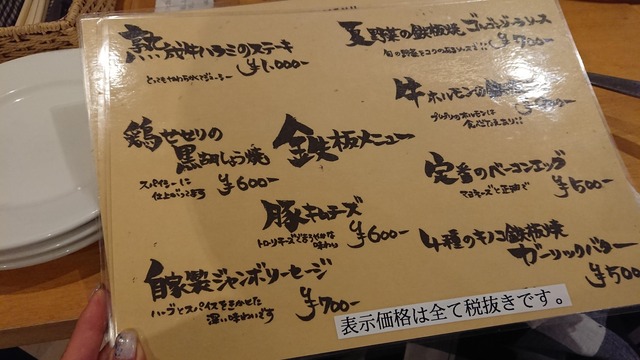 熟成牛ハラミのステーキ
¥1,000-
とってもやわらかくてジューシー
鶏せせりの
黒胡椒しょう焼
スパイシーに
仕上がってます
¥600-
鉄板メニュー
豚キムチーズ
トローリチーズでまろやかな
味わい
¥600-
自家製ジャンボソーセージ
ハーブとスパイスをきかせた
深い味わいです
¥700-
夏野菜の鉄板焼 ゴルゴンゾーラソース
¥700-
牛ホルモンの鉄板焼
プリプリのホルモンは
食べごたえあり!!
定番のベーコンエッグ
マヨネーズと正油で
¥500-
4種のキノコ鉄板焼
ガーリックバター
¥500
表示価格は全て税抜きです。